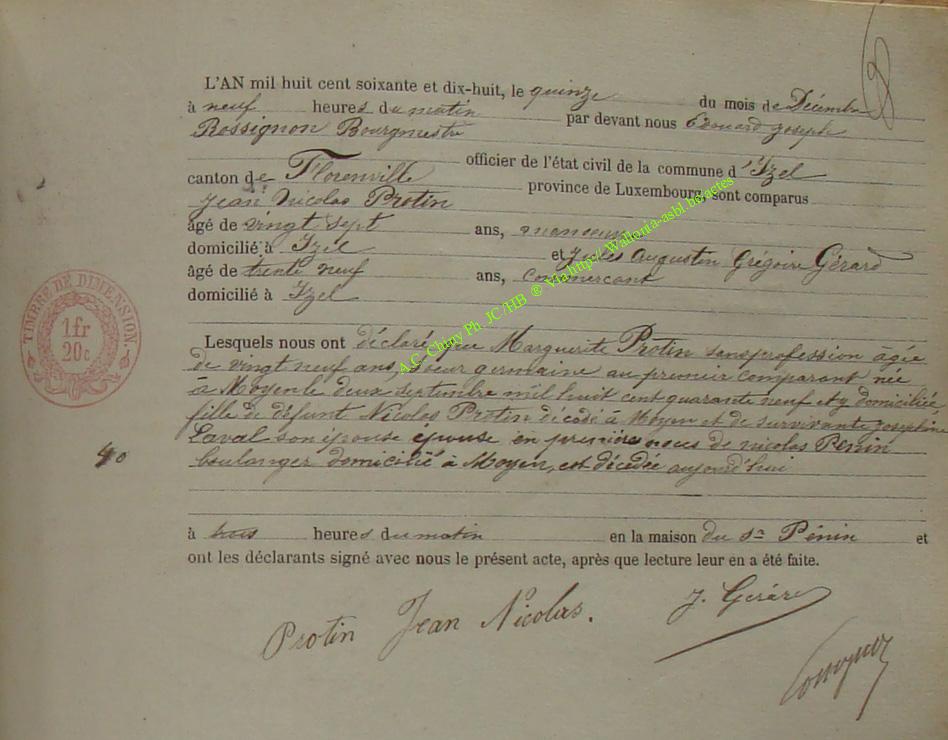 L'AN mil huit cent soixante et dix-huit, le quinze du mois de Décembre
à neuf heures du matin par devant nous Edouard Joseph
Rossignon Bourgmestre
officier de l'état civil de la commune d'Izel
canton de Florenville province de Luxembourg, sont comparus
Jean Nicolas Protin
âgé de vingt sept ans, manoeuvre
domicilié à Izel et Jules Augustin Grégoire Gérard
âgé de trente neuf ans, commercant
domicilié à Izel
Lesquels nous ont déclaré que Marguerite Protin sans profession agée
de vingt neuf ans, soeur germaine au premier comparant née
à Moyen le deux septembre mil huit cent quarante neuf et y domiciliée,
fille de défunt Nicolas Protin décédé à Moyen et de survivante Josephine
Laval son épouse épouse en premières noces de nicolas Pénin
40
boulanger domicilié à Moyen, est décédée aujourd'hui
à trois heures du matin en la maison du Sr Pénin et
ont les déclarants signé avec nous le présent acte, après que lecture leur en a été faite.
Protin Jean Nicolas. J. Gérard
TIMBRE DE DIMENSION
1fr
20c
A.C. Chiny Ph. JC /HB ® Via http:// Wallonia-asbl.be/actes